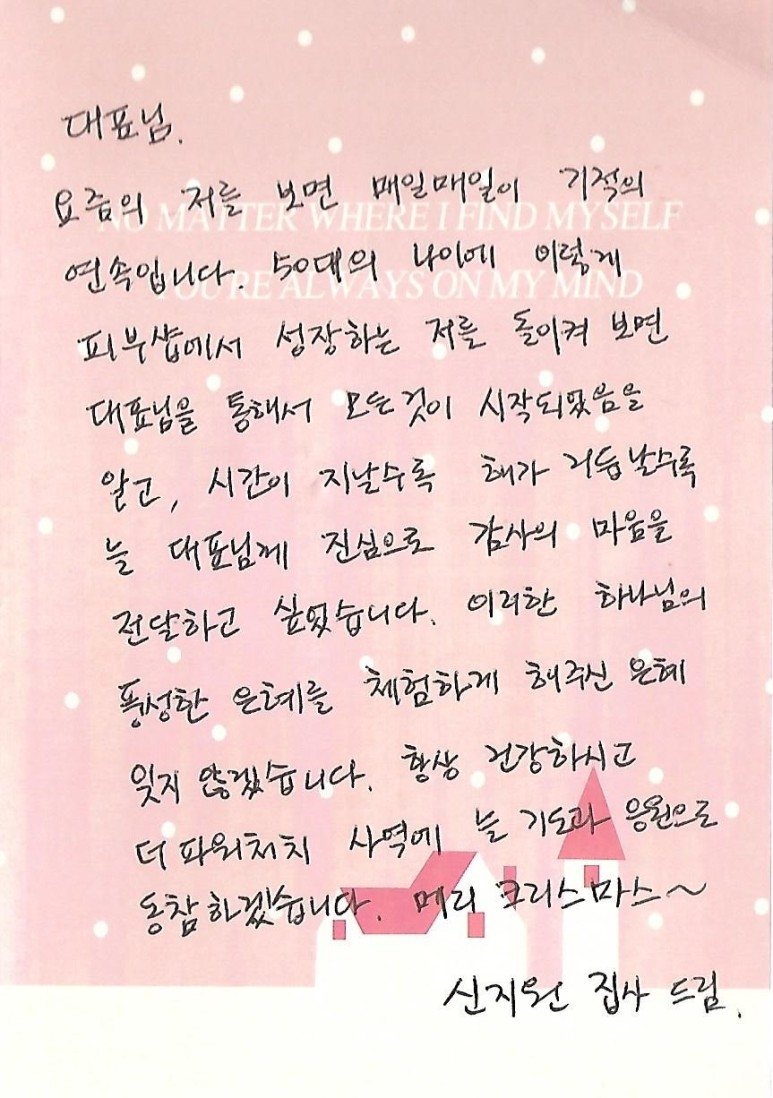 대표님.
요즘의 저를 보면 매일매일이 기적의
NO MATTER WHERE I FIND MYSELF
연속입니다. 50대의 나이에 이렇게
YOU'RE ALWAYS ON MY MIND
피부샵에서 성장하는 저를 돌이켜 보면
대표님을 통해서 모든것이 시작되었음을
알고, 시간이 지날수록 해가 거듭날수록
늘 대표님께 진심으로 감사의 마음을
전달하고 싶었습니다. 이러한 하나님의
풍성한 은혜를 체험하게 해주신 은혜
잊지 않겠습니다. 항상 건강하시고
더파워처치 사역에 늘 기도과 응원으로
동참하겠습니다. 메리 크리스마스~
신지원 집사 드림.